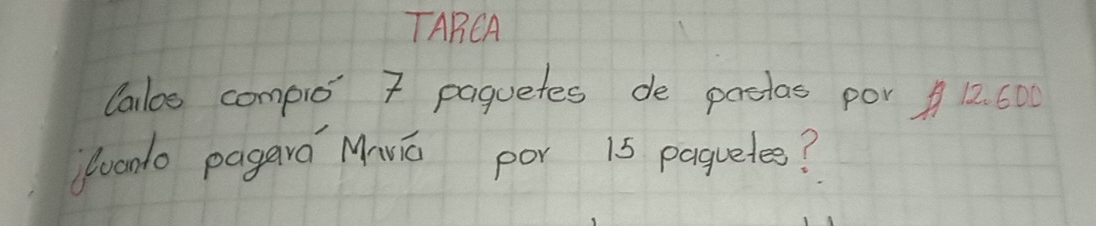 TAREA
Carlos compró 7 paquetes de pastas por $ 12.600
¿Cuanto pagará María por 15 paquetes?